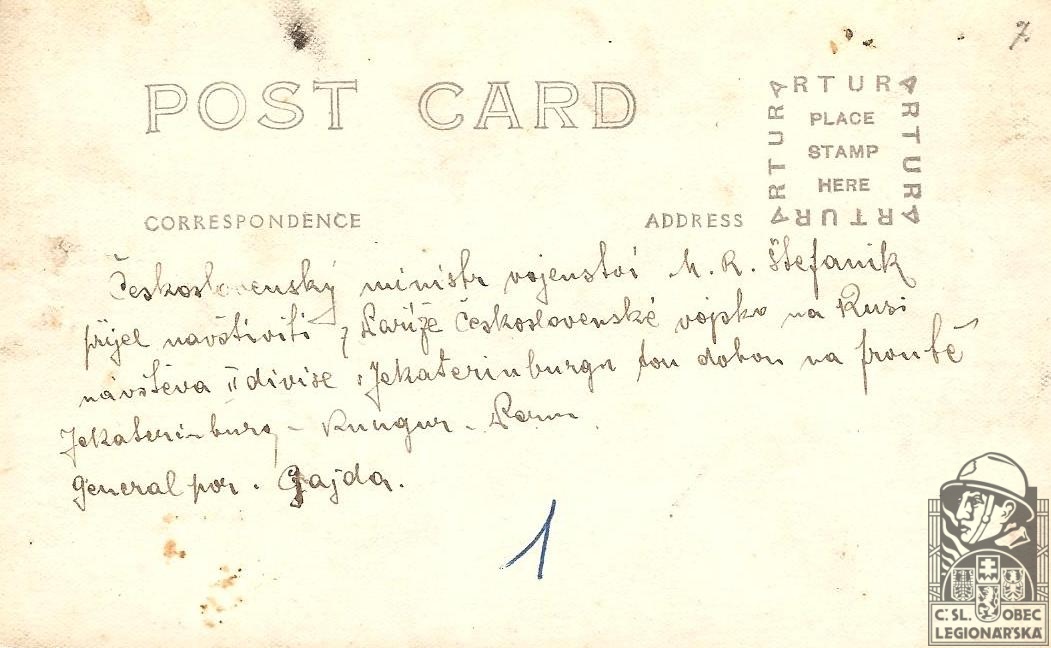 7
POST CARD
ARTURA
ARTURA
ARTURA
ARTURA
PLACE
STAMP
HERE
CORRESPONDENCE
ADDRESS
Československý ministr vojenství M. R. Štefanik
přijel navštíviti z Paríže Československé vojsko na Rusi
návštěva II divise v Jekatěrinburgu tou dobou na frontě
Jekaterinburg - Kungur - Perm
General por. Gajda.
1
Č.SL. OBEC
LEGIONÁŘSKÁ